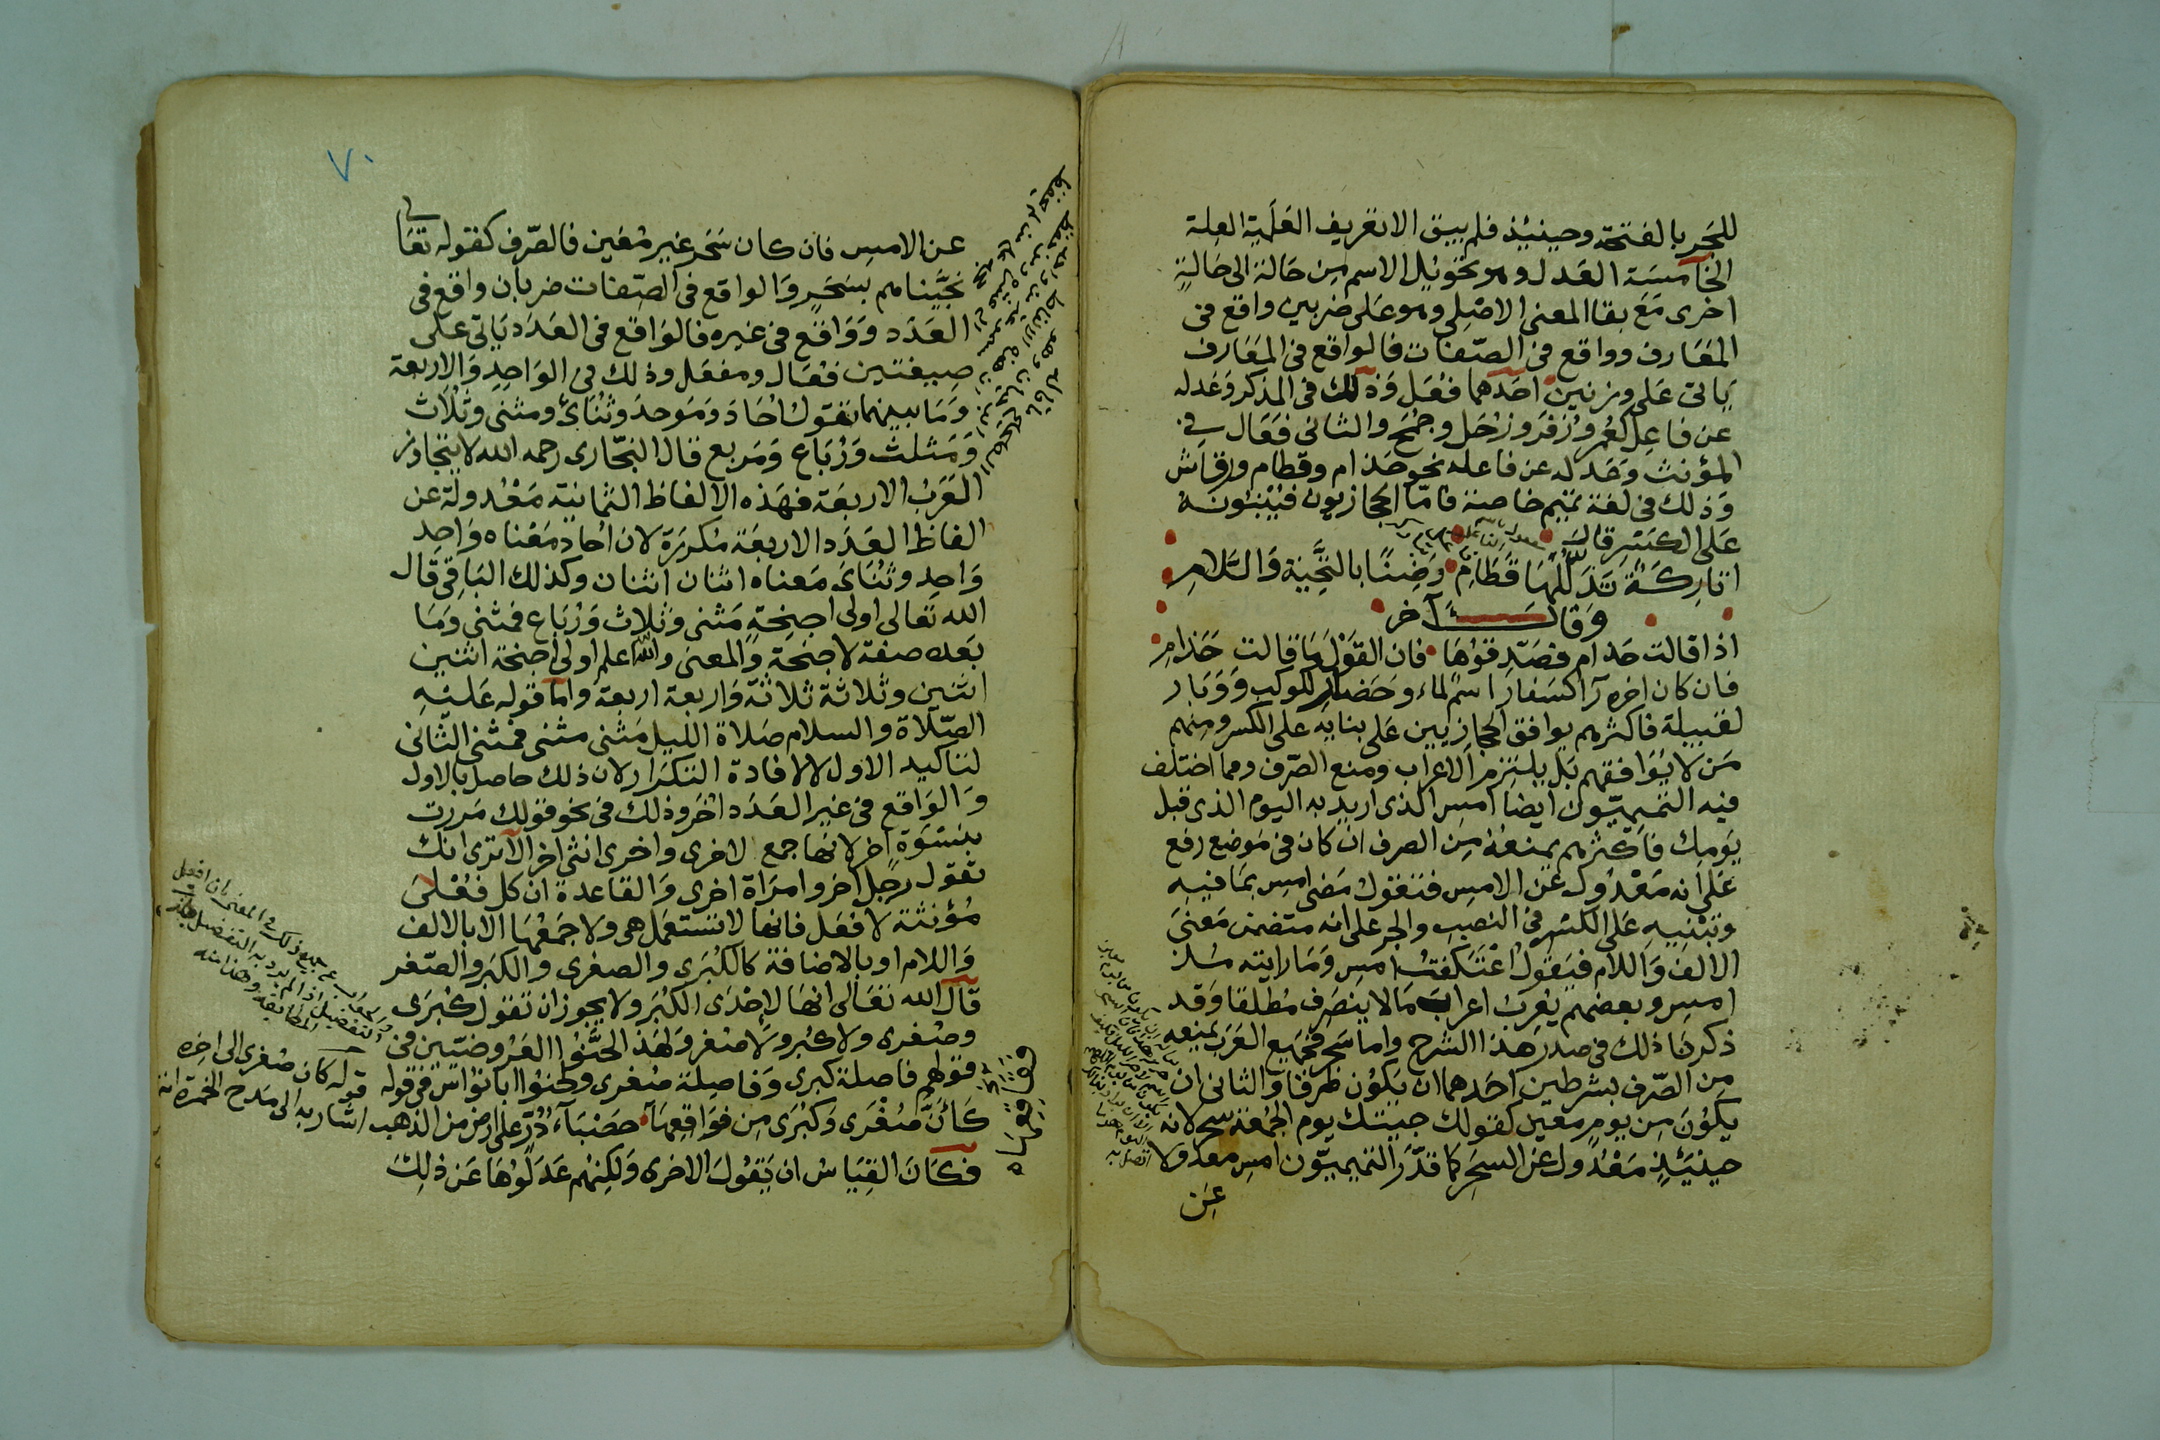 للجر بالفتحة وحينئذ فلم يبق الا تعريف العلمية العلة
الخامسة العدل وهو تحويل الاسم من حالة الى حالة
اخرى مع بقا المعنى الاصلي وهو على ضربين واقع في
المعارف وواقع في الصفات فالواقع في المعارف
ياتى على وزنين احدهما فعل وذلك في المذكر وعدله
عن فاعل كعمر وزفر وزحل وجمح والثاني فعال في
المؤنث وعدله عن فاعله نحو حذام وقطام ورقاش
وذلك في لغة تميم خاصة فاما الحجازيون فيبنونه
على الكسر قال
اتاركة تدللها قطام وضنا بالتحية والسلام
وقال آخر
اذا قالت حذام فصدقوها فان القول ما قالت حذام
فان كان اخره را كسفار اسم لماء وحضار لكوكب ووبار
لقبيلة فاكثرهم يوافق الحجازيين على بنايه على الكسر ومنهم
من لا يوافقهم بل يلتزم الاعراب ومنع الصرف ومما اختلف
فيه التميميون ايضا امس الذى اريد به اليوم الذى قبل
يومك فاكثرهم يمنعه من الصرف ان كان في موضع رفع
على انه معدول عن الامس فتقول مضى امس بما فيه
وتبنيه على الكسر في النصب والجر على انه متضمن معنى
الالف واللام فيقول اعتكفت امس وما رايته مذ
امس وبعضهم يعرب اعراب مالا ينصرف مطلقا وقد
ذكرنا ذلك في صدر هذا الشرح واما سحر فجميع العرب تمنعه
من الصرف بشرطين احدهما ان يكون ظرفا والثاني ان
يكون من يوم معين كقولك جيتك يوم الجمعة سحر لانه
حينئذ معدول عن السحر كما قدر التميميون امس معدولا
عن
٧٠
عن الامس فان كان سحر غير معين فالصرف كقوله تعالى
نجيناهم بسحر والواقع في الصفات ضربان واقع في
العدد وواقع في غيره فالواقع في العدد ياتى على
صيغتين فعال ومفعل وذلك في الواحد والاربعة
وما بينهما تقول احاد وموحد وثناى ومثنى وثلاث
ومثلث ورباع ومربع قال البخارى رحمه الله لا يتجاوز
العرب الاربعة فهذه الالفاظ الثمانية معدولة عن
الفاظ العدد الاربعة مكررة لان احاد معناه واحد
واحد وثناى معناه اثنان اثنان وكذلك الباقي قال
الله تعالى اولى اجنحة مثنى وثلاث ورباع فمثنى وما
بعده صفة لاجنحة والمعنى والله اعلم اولى اجنحة اثنين
اثنين وثلاثة ثلاثة واربعة اربعة واما قوله عليه
الصلاة والسلام صلاة الليل مثنى مثنى فمثنى الثانى
لتاكيد الاول لا لافادة التكرار لان ذلك حاصل بالاول
والواقع في غير العدد اخر وذلك في نحو قولك مررت
بنسوة اخر لانها جمع لاخرى واخرى انثى اخر الا ترى انك
تقول رجل اخر وامراة اخرى والقاعدة ان كل فعلى
مؤنثة لافعل فانها لا تستعمل هى ولا جمعها الا بالالف
واللام او بالاضافة كالكبرى والصغرى والكبر والصغر
قال الله تعالى انها لاحدى الكبر ولا يجوز ان تقول كبرى
وصغرى ولا كبر ولا صغر ولهذا لحنوا العروضيين في
قولهم فاصلة كبرى وفاصلة صغرى ولحنوا ابا نواس في قوله
كأن صغرى وكبرى من فواقعها حصباء در على ارض من الذهب
فكان القياس ان يقول الاخرى ولكنهم عدلوها عن ذلك
قوله كان صغرى الى اخره
اشار به الى مدح الخمرة انه